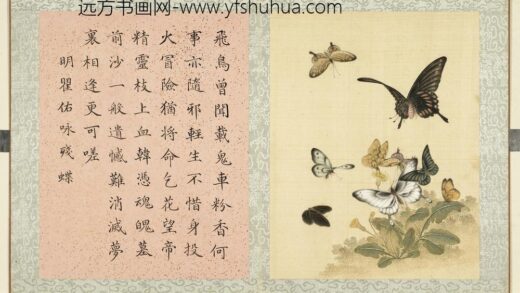 远方书画网-www.yfshuhua.com
飛鳥曾聞載鬼車粉香何
事亦隨邪輕生不惜身投
火冒險猶将命乞花望帝
精靈枝上血韓憑魂魄墓
前沙一般遺憾難消滅夢
裏相逢更可嗟
明瞿佑咏殘蝶